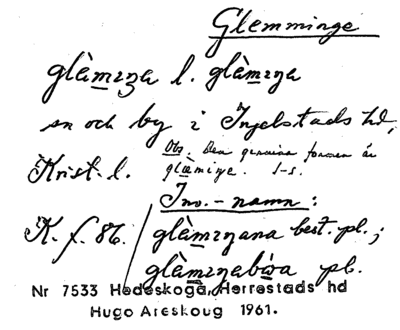 Glemminge
glæ̀mıŋa l. glæ̀mıŋa
sn och by i Ingelstads hd,
Obs. Den genuina formen är
Krist. l. glæmiŋe. S-s.
Inv.-namn:
K. f. 86. glæ̀mıŋana best. pl.;
glæ̀mıŋaböa pl.
Nr 7533 Hedeskoga, Herrestads hd
Hugo Areskoug 1961.